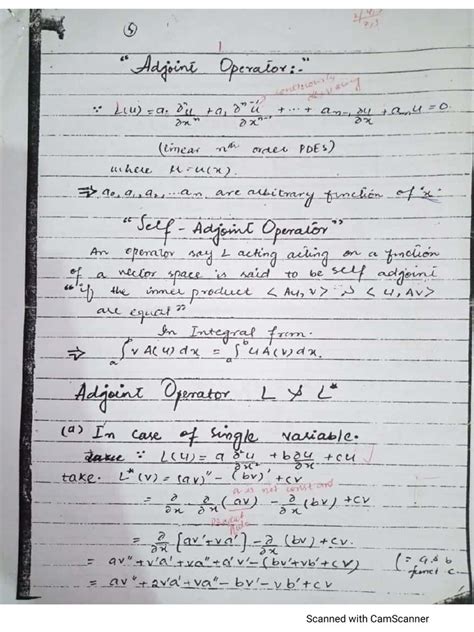 (5)
1
"Adjoint Operator:-"
continuously
∵ L(u) = a₀ ∂ⁿu/∂xⁿ + a₁ ∂ⁿ⁻¹u/∂xⁿ⁻¹ + ... + aₙ₋₁ ∂u/∂x + aₙu = 0
(linear nth order PDEs)
where u = u(x).
⇒ a₀, a₁, a₂, ... an are arbitrary function of 'x'.
"Self - Adjoint Operator"
An operator say L acting acting on a function
of a vector space is said to be self adjoint
"if the inner product < Au, v > & < u, Av >
are equal"
In Integral from.
⇒ ₐ∫ᵇ v A(u) dx = ₐ∫ᵇ u A(v) dx.
Adjoint Operator L & L*
(a) In case of single variable.
take ∵ L(u) = a ∂²u/∂x² + b ∂u/∂x + cu
take. L*(v) = (av)'' - (bv)' + cv
a is not constant
= ∂/∂x ∂/∂x (av) - ∂/∂x (bv) + cv
Product Rule
= ∂/∂x [av' + va'] - ∂/∂x (bv) + cv.
= av'' + v'a' + va'' + a'v' - (bv' + vb') + cv (∵ a, b
= av'' + 2v'a' + va'' - bv' - vb' + cv funct
Scanned with CamScanner